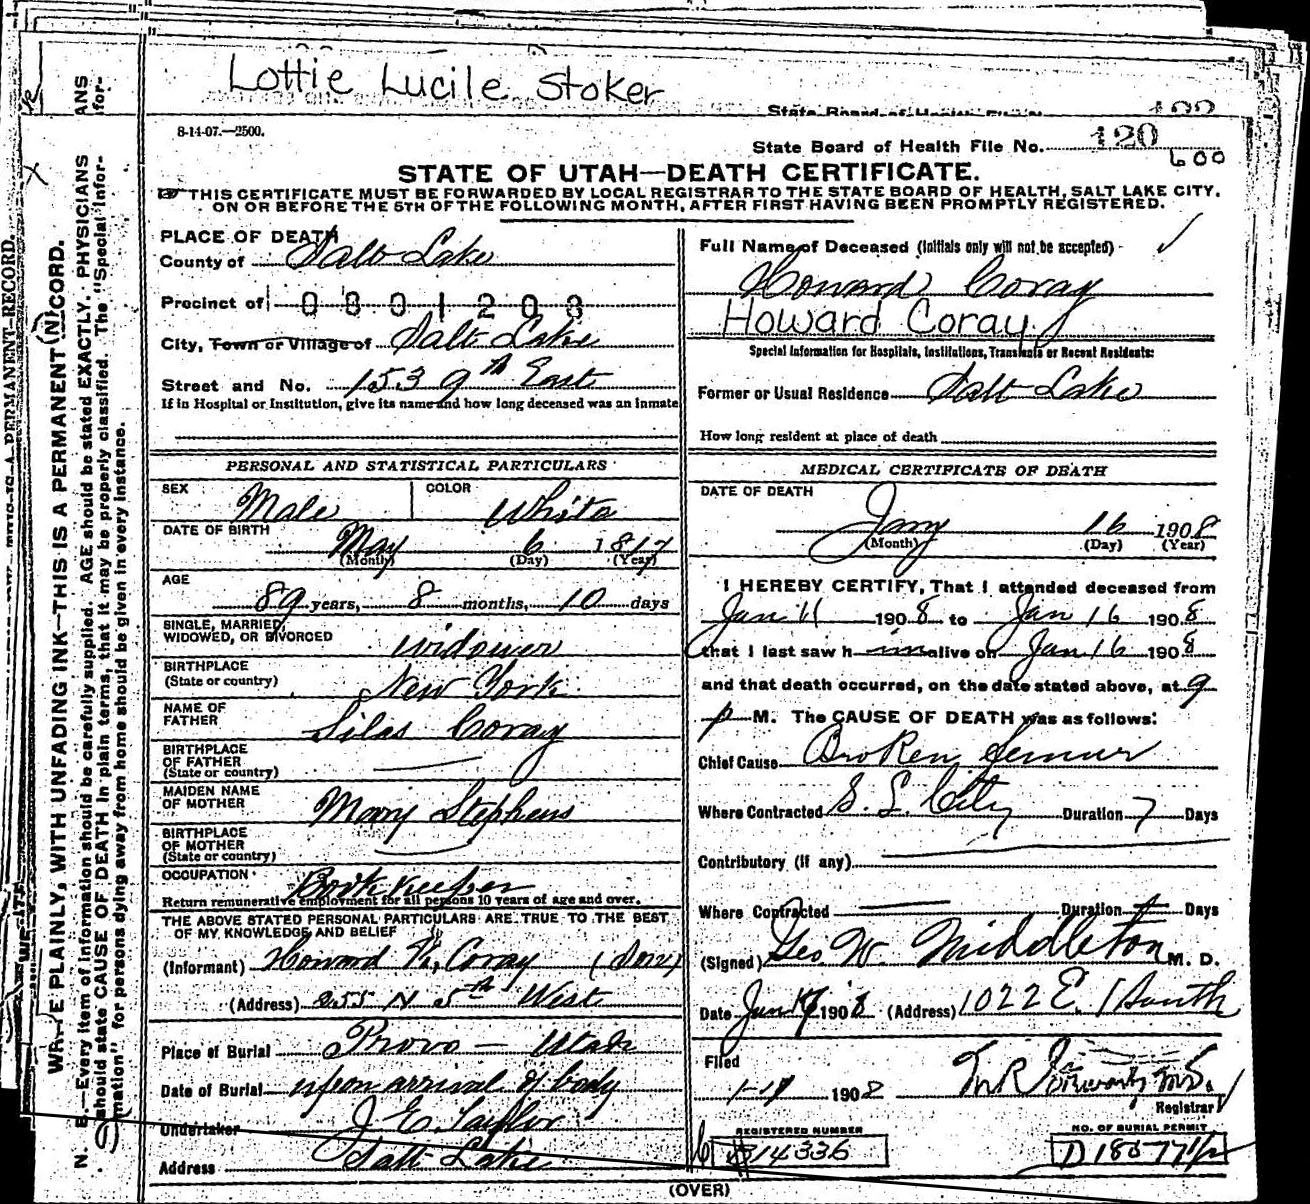 Lottie Lucile Stoker
State Board of Health File N
122
8-14-07.—2500.
State Board of Health File No. 120
600
STATE OF UTAH—DEATH CERTIFICATE.
THIS CERTIFICATE MUST BE FORWARDED BY LOCAL REGISTRAR TO THE STATE BOARD OF HEALTH, SALT LAKE CITY,
ON OR BEFORE THE 5TH OF THE FOLLOWING MONTH, AFTER FIRST HAVING BEEN PROMPTLY REGISTERED.
PLACE OF DEATH
County of Salt Lake
Precinct of 0801208
City, Town or Village of Salt Lake
Street and No. 153 9th East
If in Hospital or Institution, give its name and how long deceased was an inmate
Full Name of Deceased (Initials only will not be accepted)
Howard Coray
Howard Coray
Special Information for Hospitals, Institutions, Transients or Recent Residents:
Former or Usual Residence Salt Lake
How long resident at place of death
PERSONAL AND STATISTICAL PARTICULARS
SEX Male COLOR White
DATE OF BIRTH May 6 1817
(Month) (Day) (Year)
AGE 89 years, 8 months, 10 days
SINGLE, MARRIED,
WIDOWED, OR DIVORCED widower
BIRTHPLACE
(State or country) New York
NAME OF
FATHER Silas Coray
BIRTHPLACE
OF FATHER
(State or country)
MAIDEN NAME
OF MOTHER Mary Stephens
BIRTHPLACE
OF MOTHER
(State or country)
OCCUPATION Book Keeper
Return remunerative employment for all persons 10 years of age and over.
THE ABOVE STATED PERSONAL PARTICULARS ARE TRUE TO THE BEST
OF MY KNOWLEDGE AND BELIEF
(Informant) Howard K. Coray (Son)
(Address) 255 N 5th West
Place of Burial Provo — Utah
Date of Burial upon arrival of body
Undertaker J. E. Taylor
Address Salt Lake
MEDICAL CERTIFICATE OF DEATH
DATE OF DEATH
Jany 16 1908
(Month) (Day) (Year)
I HEREBY CERTIFY, That I attended deceased from
Jan 11 1908 to Jan 16 1908
that I last saw h im alive on Jan 16 1908
and that death occurred, on the date stated above, at 9
p M. The CAUSE OF DEATH was as follows:
Chief Cause Broken femur
Where Contracted S. L. City Duration 7 Days
Contributory (if any)
Where Contracted Duration Days
(Signed) Geo. W. Middleton M. D.
Date Jan 17 1908 (Address) 1022 E. 1 South
Filed
1-17 1908
Registrar
REGISTERED NUMBER
14336
NO. OF BURIAL PERMIT
D 18577 1/2
(OVER)
WRITE PLAINLY, WITH UNFADING INK—THIS IS A PERMANENT RECORD.
N. B.—Every item of information should be carefully supplied. AGE should be stated EXACTLY. PHYSICIANS
should state CAUSE OF DEATH in plain terms, that it may be properly classified. The "Special Infor-
mation" for persons dying away from home should be given in every instance.